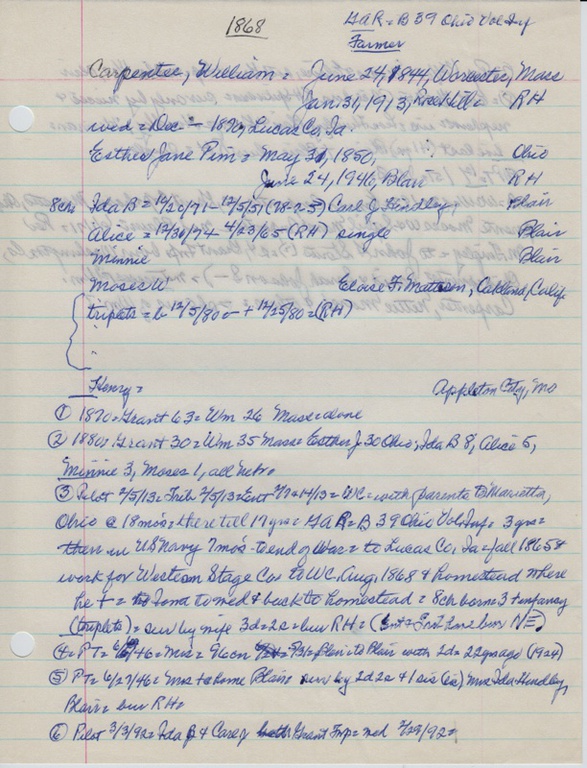 1868
GAR = B 39 Ohio Vol Inf
Farmer
Carpenter, William = June 24, 1844, Worcester, Mass
Jan 31, 1913, Rose Hill = RH
wed = Dec - 1870, Lucas Co, Ia.
Esther Jane Pim = May 31, 1850, Ohio
June 24, 1946, Blair RH
8ch Ida B = Carl J Hindley, Blair
Alice = 12/30/74 - 4/23/65 (RH) single Blair
Minnie Blair
Moses W Eloise F. Mattson, Oakland, Calif
triplets = b 12/5/80 - + 12/25/80 = (RH)
"
"
Henry = Appleton City, Mo
① 1870 = Grant 63 = Wm 26 Mass = alone
② 1880 = Grant 30 = Wm 35 Mass = Esther J 30 Ohio, Ida B 8, Alice 5,
Minnie 3, Moses 1, all Nebr
③ Pilot 2/5/13 = Trib 2/5/13 = Ent = WC = with parents to Marietta,
Ohio @ 18 mos = there till 17 yrs = GAR = B 39 Ohio Vol Inf = 3 yrs =
then in US Navy 7 mos to end of War = to Lucas Co, Ia = fall 1865 &
work for Western Stage Co = to WC, Aug, 1868 & homestead where
he + = to Iowa to wed & back to homestead = 8ch born 3 + infancy
(triplets) = surv by wife 3d = 2s = bur RH =
④ = PT = = Mrs = 96 on 5/31 = Blair with 2d = 22 yrs ago (1924)
⑤ PT = 6/27/46 = Mrs + home Blair surv by 2d 2s & 1 sis Mrs Ida Hindley,
Blair = bur RH =
⑥ Pilot 3/3/92 = Ida B & Carey both Grant Twp = wed 2/29/92 =